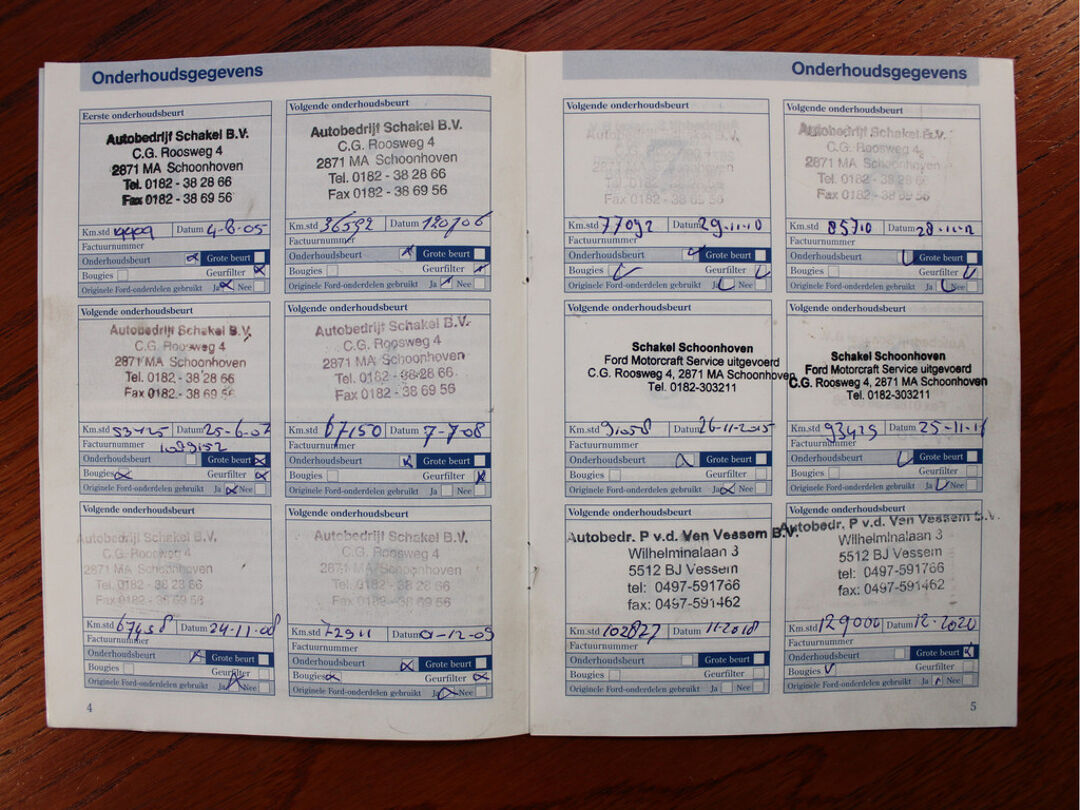 Onderhoudsgegevens
Eerste onderhoudsbeurt
Autobedrijf Schakel B.V.
C.G. Roosweg 4
2871 MA Schoonhoven
Tel. 0182 - 38 28 66
Fax 0182 - 38 69 56
Km.std 19999 Datum 4-8-05
Factuurnummer
Onderhoudsbeurt Grote beurt
Bougies Geurfilter
Originele Ford-onderdelen gebruikt Ja Nee
Volgende onderhoudsbeurt
Autobedrijf Schakel B.V.
C.G. Roosweg 4
2871 MA Schoonhoven
Tel. 0182 - 38 28 66
Fax 0182 - 38 69 56
Km.std 36592 Datum 120706
Factuurnummer
Onderhoudsbeurt Grote beurt
Bougies Geurfilter
Originele Ford-onderdelen gebruikt Ja Nee
Volgende onderhoudsbeurt
Autobedrijf Schakel B.V.
C.G. Roosweg 4
2871 MA Schoonhoven
Tel. 0182 - 38 28 66
Fax 0182 - 38 69 56
Km.std 53125 Datum 25-6-07
Factuurnummer 1089152
Onderhoudsbeurt Grote beurt
Bougies Geurfilter
Originele Ford-onderdelen gebruikt Ja Nee
Volgende onderhoudsbeurt
Autobedrijf Schakel B.V.
C.G. Roosweg 4
2871 MA Schoonhoven
Tel. 0182 - 38 28 66
Fax 0182 - 38 69 56
Km.std 67150 Datum 7-7-08
Factuurnummer
Onderhoudsbeurt Grote beurt
Bougies Geurfilter
Originele Ford-onderdelen gebruikt Ja Nee
Volgende onderhoudsbeurt
Autobedrijf Schakel B.V.
C.G. Roosweg 4
2871 MA Schoonhoven
Tel. 0182 - 38 28 66
Fax 0182 - 38 69 56
Km.std 67458 Datum 24-11-08
Factuurnummer
Onderhoudsbeurt Grote beurt
Bougies Geurfilter
Originele Ford-onderdelen gebruikt Ja Nee
Volgende onderhoudsbeurt
Autobedrijf Schakel B.V.
C.G. Roosweg 4
2871 MA Schoonhoven
Tel. 0182 - 38 28 66
Fax 0182 - 38 69 56
Km.std 72911 Datum 01-12-09
Factuurnummer
Onderhoudsbeurt Grote beurt
Bougies Geurfilter
Originele Ford-onderdelen gebruikt Ja Nee
4
Onderhoudsgegevens
Volgende onderhoudsbeurt
Km.std 77092 Datum 29-11-10
Factuurnummer
Onderhoudsbeurt Grote beurt
Bougies Geurfilter
Originele Ford-onderdelen gebruikt Ja Nee
Volgende onderhoudsbeurt
Autobedrijf Schakel B.V.
C.G. Roosweg 4
2871 MA Schoonhoven
Tel. 0182 - 38 28 66
Fax 0182 - 38 69 56
Km.std 85710 Datum 28-11-12
Factuurnummer
Onderhoudsbeurt Grote beurt
Bougies Geurfilter
Originele Ford-onderdelen gebruikt Ja Nee
Volgende onderhoudsbeurt
Schakel Schoonhoven
Ford Motorcraft Service uitgevoerd
C.G. Roosweg 4, 2871 MA Schoonhoven
Tel. 0182-303211
Km.std 91058 Datum 26-11-2015
Factuurnummer
Onderhoudsbeurt Grote beurt
Bougies Geurfilter
Originele Ford-onderdelen gebruikt Ja Nee
Volgende onderhoudsbeurt
Schakel Schoonhoven
Ford Motorcraft Service uitgevoerd
C.G. Roosweg 4, 2871 MA Schoonhoven
Tel. 0182-303211
Km.std 93429 Datum 25-11-
Factuurnummer
Onderhoudsbeurt Grote beurt
Bougies Geurfilter
Originele Ford-onderdelen gebruikt Ja Nee
Volgende onderhoudsbeurt
Autobedr. P v.d. Ven Vessem B.V.
Wilhelminalaan 3
5512 BJ Vessem
tel: 0497-591766
fax: 0497-591462
Km.std 102827 Datum 11-2018
Factuurnummer
Onderhoudsbeurt Grote beurt
Bougies Geurfilter
Originele Ford-onderdelen gebruikt Ja Nee
Volgende onderhoudsbeurt
Autobedr. P v.d. Ven Vessem B.V.
Wilhelminalaan 3
5512 BJ Vessem
tel: 0497-591766
fax: 0497-591462
Km.std 129000 Datum 12-2020
Factuurnummer
Onderhoudsbeurt Grote beurt
Bougies Geurfilter
Originele Ford-onderdelen gebruikt Ja Nee
5